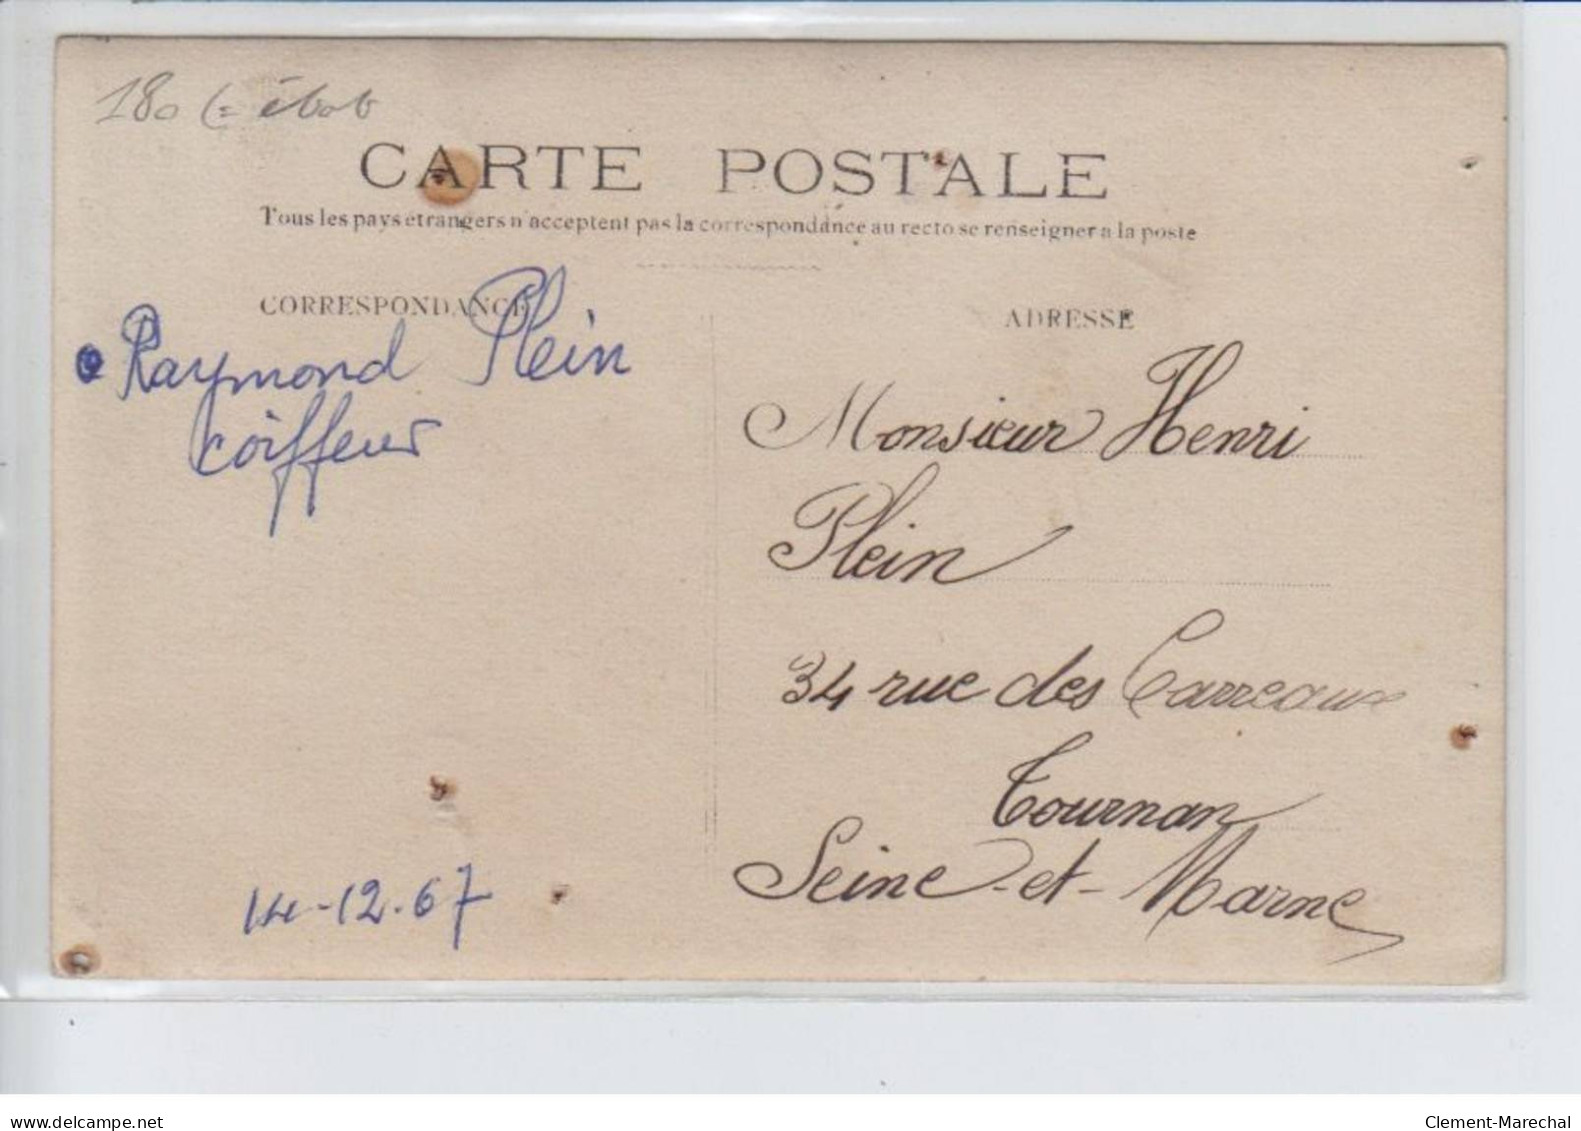 180
CARTE POSTALE
Tous les pays etrangers n'acceptent pas la correspondance au recto se renseigner a la poste
CORRESPONDANCE
ADRESSE
Raymond Plein
coiffeur
Monsieur Henri
Plein
34 rue des Carreaux
Tournan
Seine-et-Marne
14-12.67
delcampe.net
Clement-Marechal